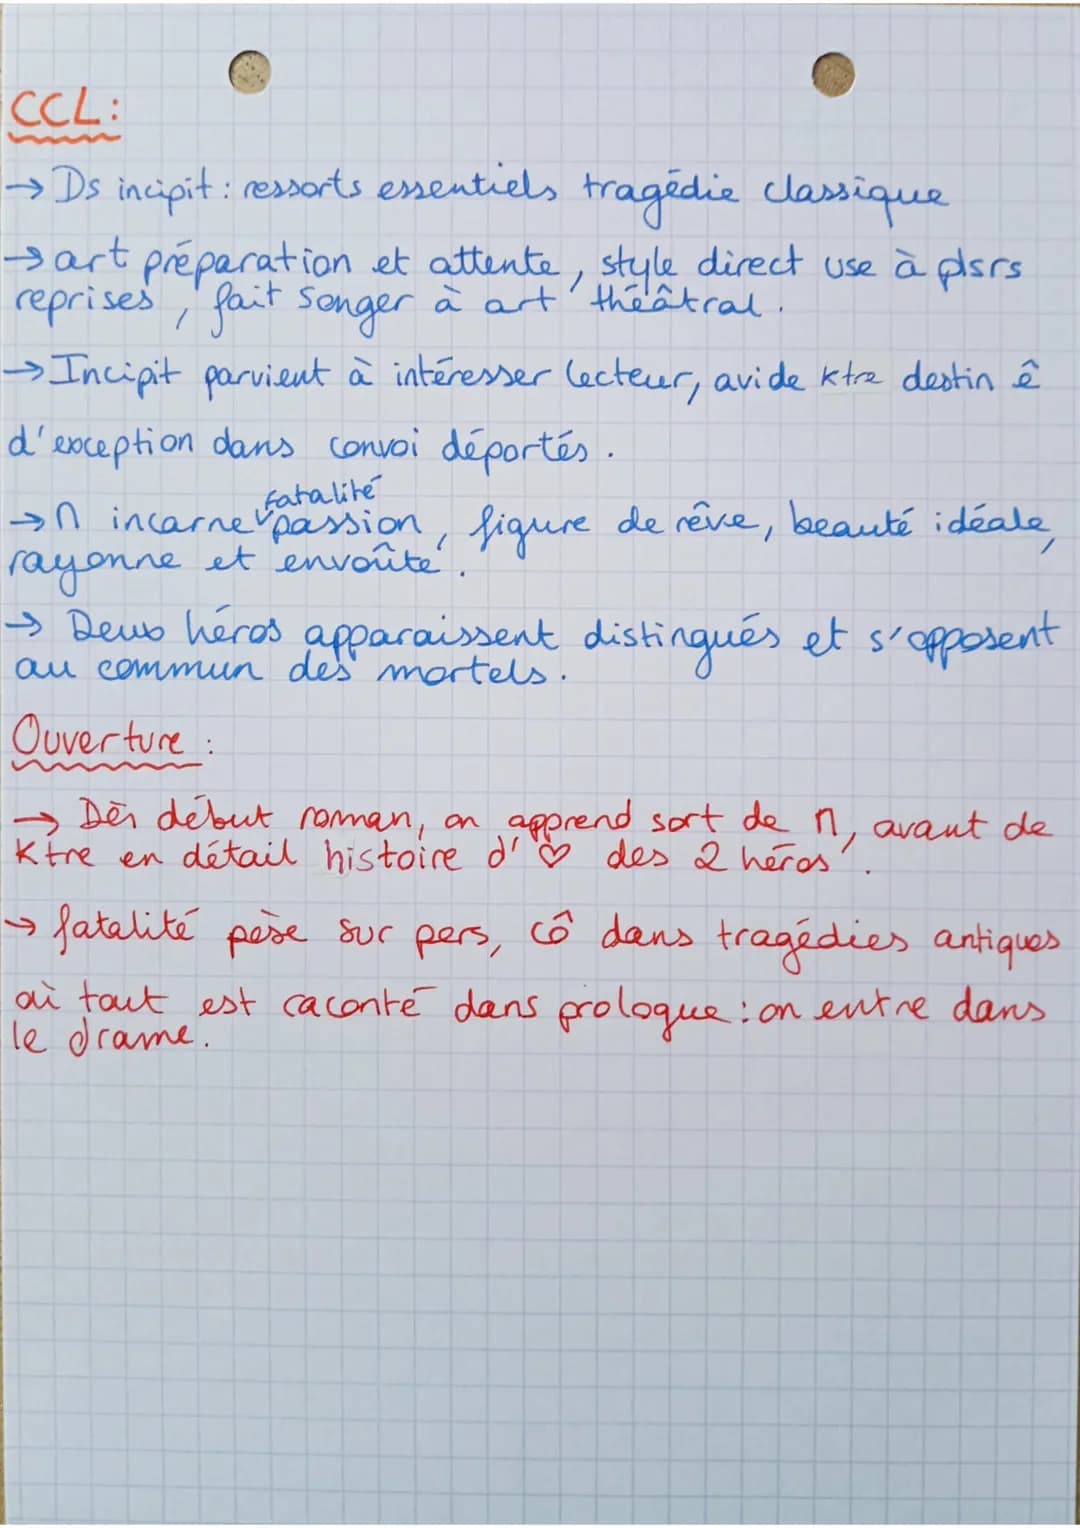 CCL:
→ Ds incipit : ressorts essentiels tragédie classique
→ art préparation et attente, style direct use à plsrs
reprises, fait songer à art théâtral.
→ Incipit parvient à intéresser lecteur, avide Ktre destin ê
d'exception dans convoi déportés.
fatalité
→ N incarne ∨ passion, figure de rêve, beauté idéale,
rayonne et envoûte.
→ Deux héros apparaissent distingués et s'opposent
au commun des mortels.
Ouverture :
→ Dès début roman, on apprend sort de N, avant de
Ktre en détail histoire d' ♡ des 2 héros.
→ fatalité pèse sur pers, cô dans tragédies antiques
où tout est raconté dans prologue : on entre dans
le drame.